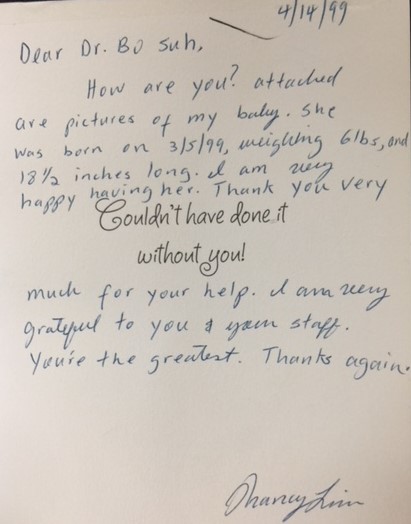 4/14/99
Dear Dr. Bo Suh,
How are you? attached
are pictures of my baby. She
was born on 3/5/99, weighing 6lbs, and
18 1/2 inches long. I am very
happy having her. Thank you very
Couldn't have done it
without you!
much for your help. I am very
grateful to you & your staff.
You're the greatest. Thanks again.
Lim